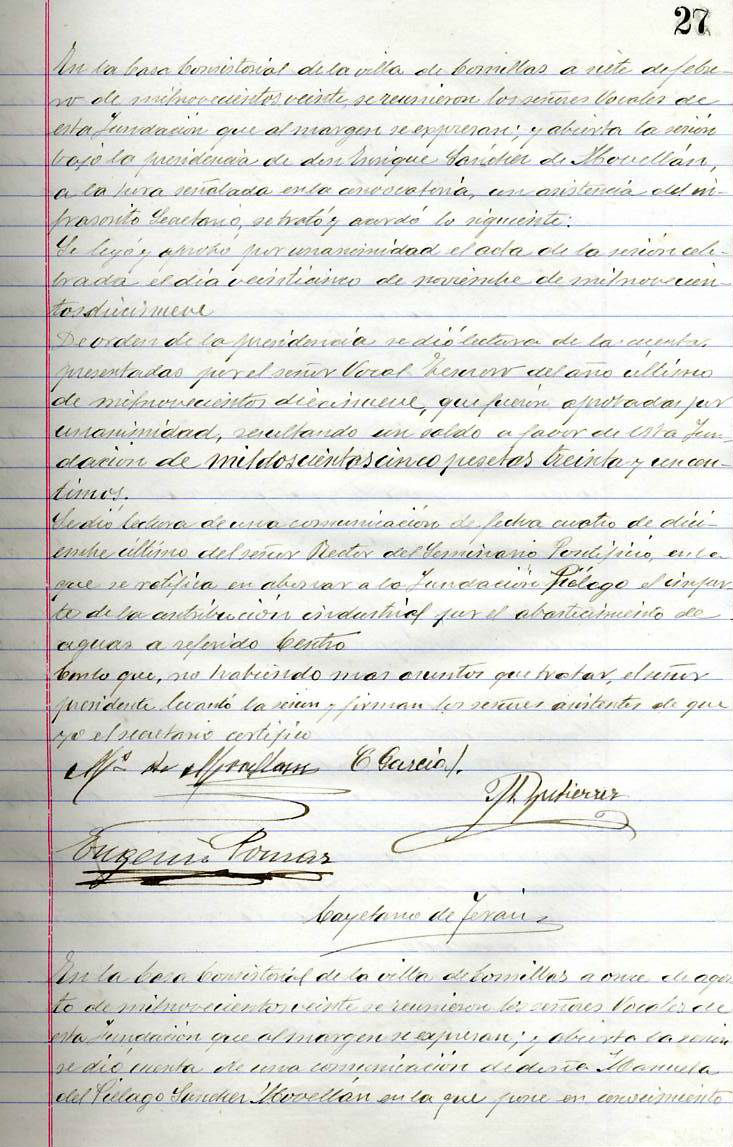 27
En la Casa Consistorial de la villa de Comillas a siete de febre-
ro de milnovecientos veinte se reunieron los señores Vocales de
esta Fundación que al margen se expresan; y abierta la sesión
bajo la presidencia de don Enrique Sánchez de Movellán,
a la hora señalada en la convocatoria, con asistencia del in-
frascrito Secretario, se trató y acordó lo siguiente:
Se leyó y aprobó por unanimidad el acta de la sesión cele-
brada el día veinticinco de noviembre de milnovecien-
tos diecinueve
De orden de la presidencia se dió lectura de la cuentas
presentadas por el señor Vocal Tesorero del año último
de milnovecientos diecinueve, que fueron aprobadas por
unanimidad, resultando un saldo a favor de esta Fun-
dación de mil doscientas cinco pesetas treinta y un cen-
timos.
Se dió lectura de una comunicación de fecha cuatro de dici-
embre último del señor Rector del Seminario Pontificio, en la
que se ratifica en abonar a la Fundación Piélago el impor-
te de la contribución industrial por el abastecimiento de
aguas a referido Centro
Con lo que, no habiendo mas asuntos que tratar, el señor
presidente levantó la sesion y firman los señores asistentes de que
yo el secretario certifico
Mº de Movellan C Garcia
M Gutierrez
Eugenio Pomar
Cayetano de Teran
En la Casa Consistorial de la villa de Comillas a once de agos-
to de milnovecientos veinte se reunieron los señores Vocales de
esta Fundación que al margen se expresan; y abierta la sesion
se dió cuenta de una comunicación de doña Manuela
del Piélago Sánchez Movellán en la que pone en conocimiento